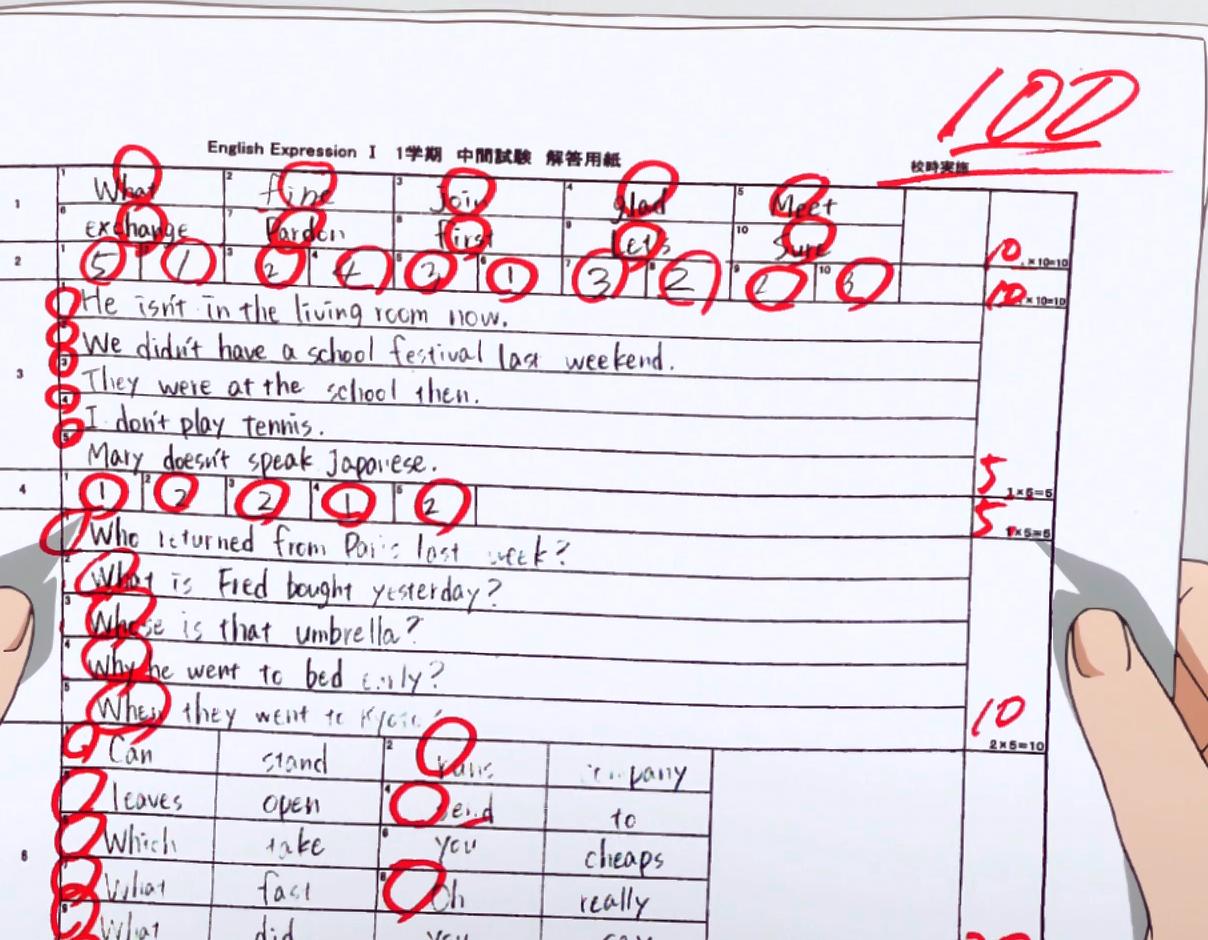 100
English Expression I 1学期 中間試験 解答用紙
校時実施
1
1 What 2 fine 3 Join 4 glad 5 Meet
6 exchange 7 Pardon 8 first 9 Let's 10 Sure
10 ×10=10
2
1 5 1 3 2 4 4 5 2 6 1 7 3 8 2 9 2 10 3
10 ×10=10
3
He isn't in the living room now.
We didn't have a school festival last weekend.
3 They were at the school then.
4 I don't play tennis.
5 Mary doesn't speak Japanese.
5 1×5=5
4
1 1 2 2 3 2 4 1 5 2
5 1×5=5
Who returned from Paris last week?
2 What is Fred bought yesterday?
3 Whose is that umbrella?
4 Why he went to bed early?
5 When they went to
10 2×5=10
6
Can stand 2 runs company
leaves open 4 send to
Which take 6 you cheaps
What fast 8 Oh really
What did you